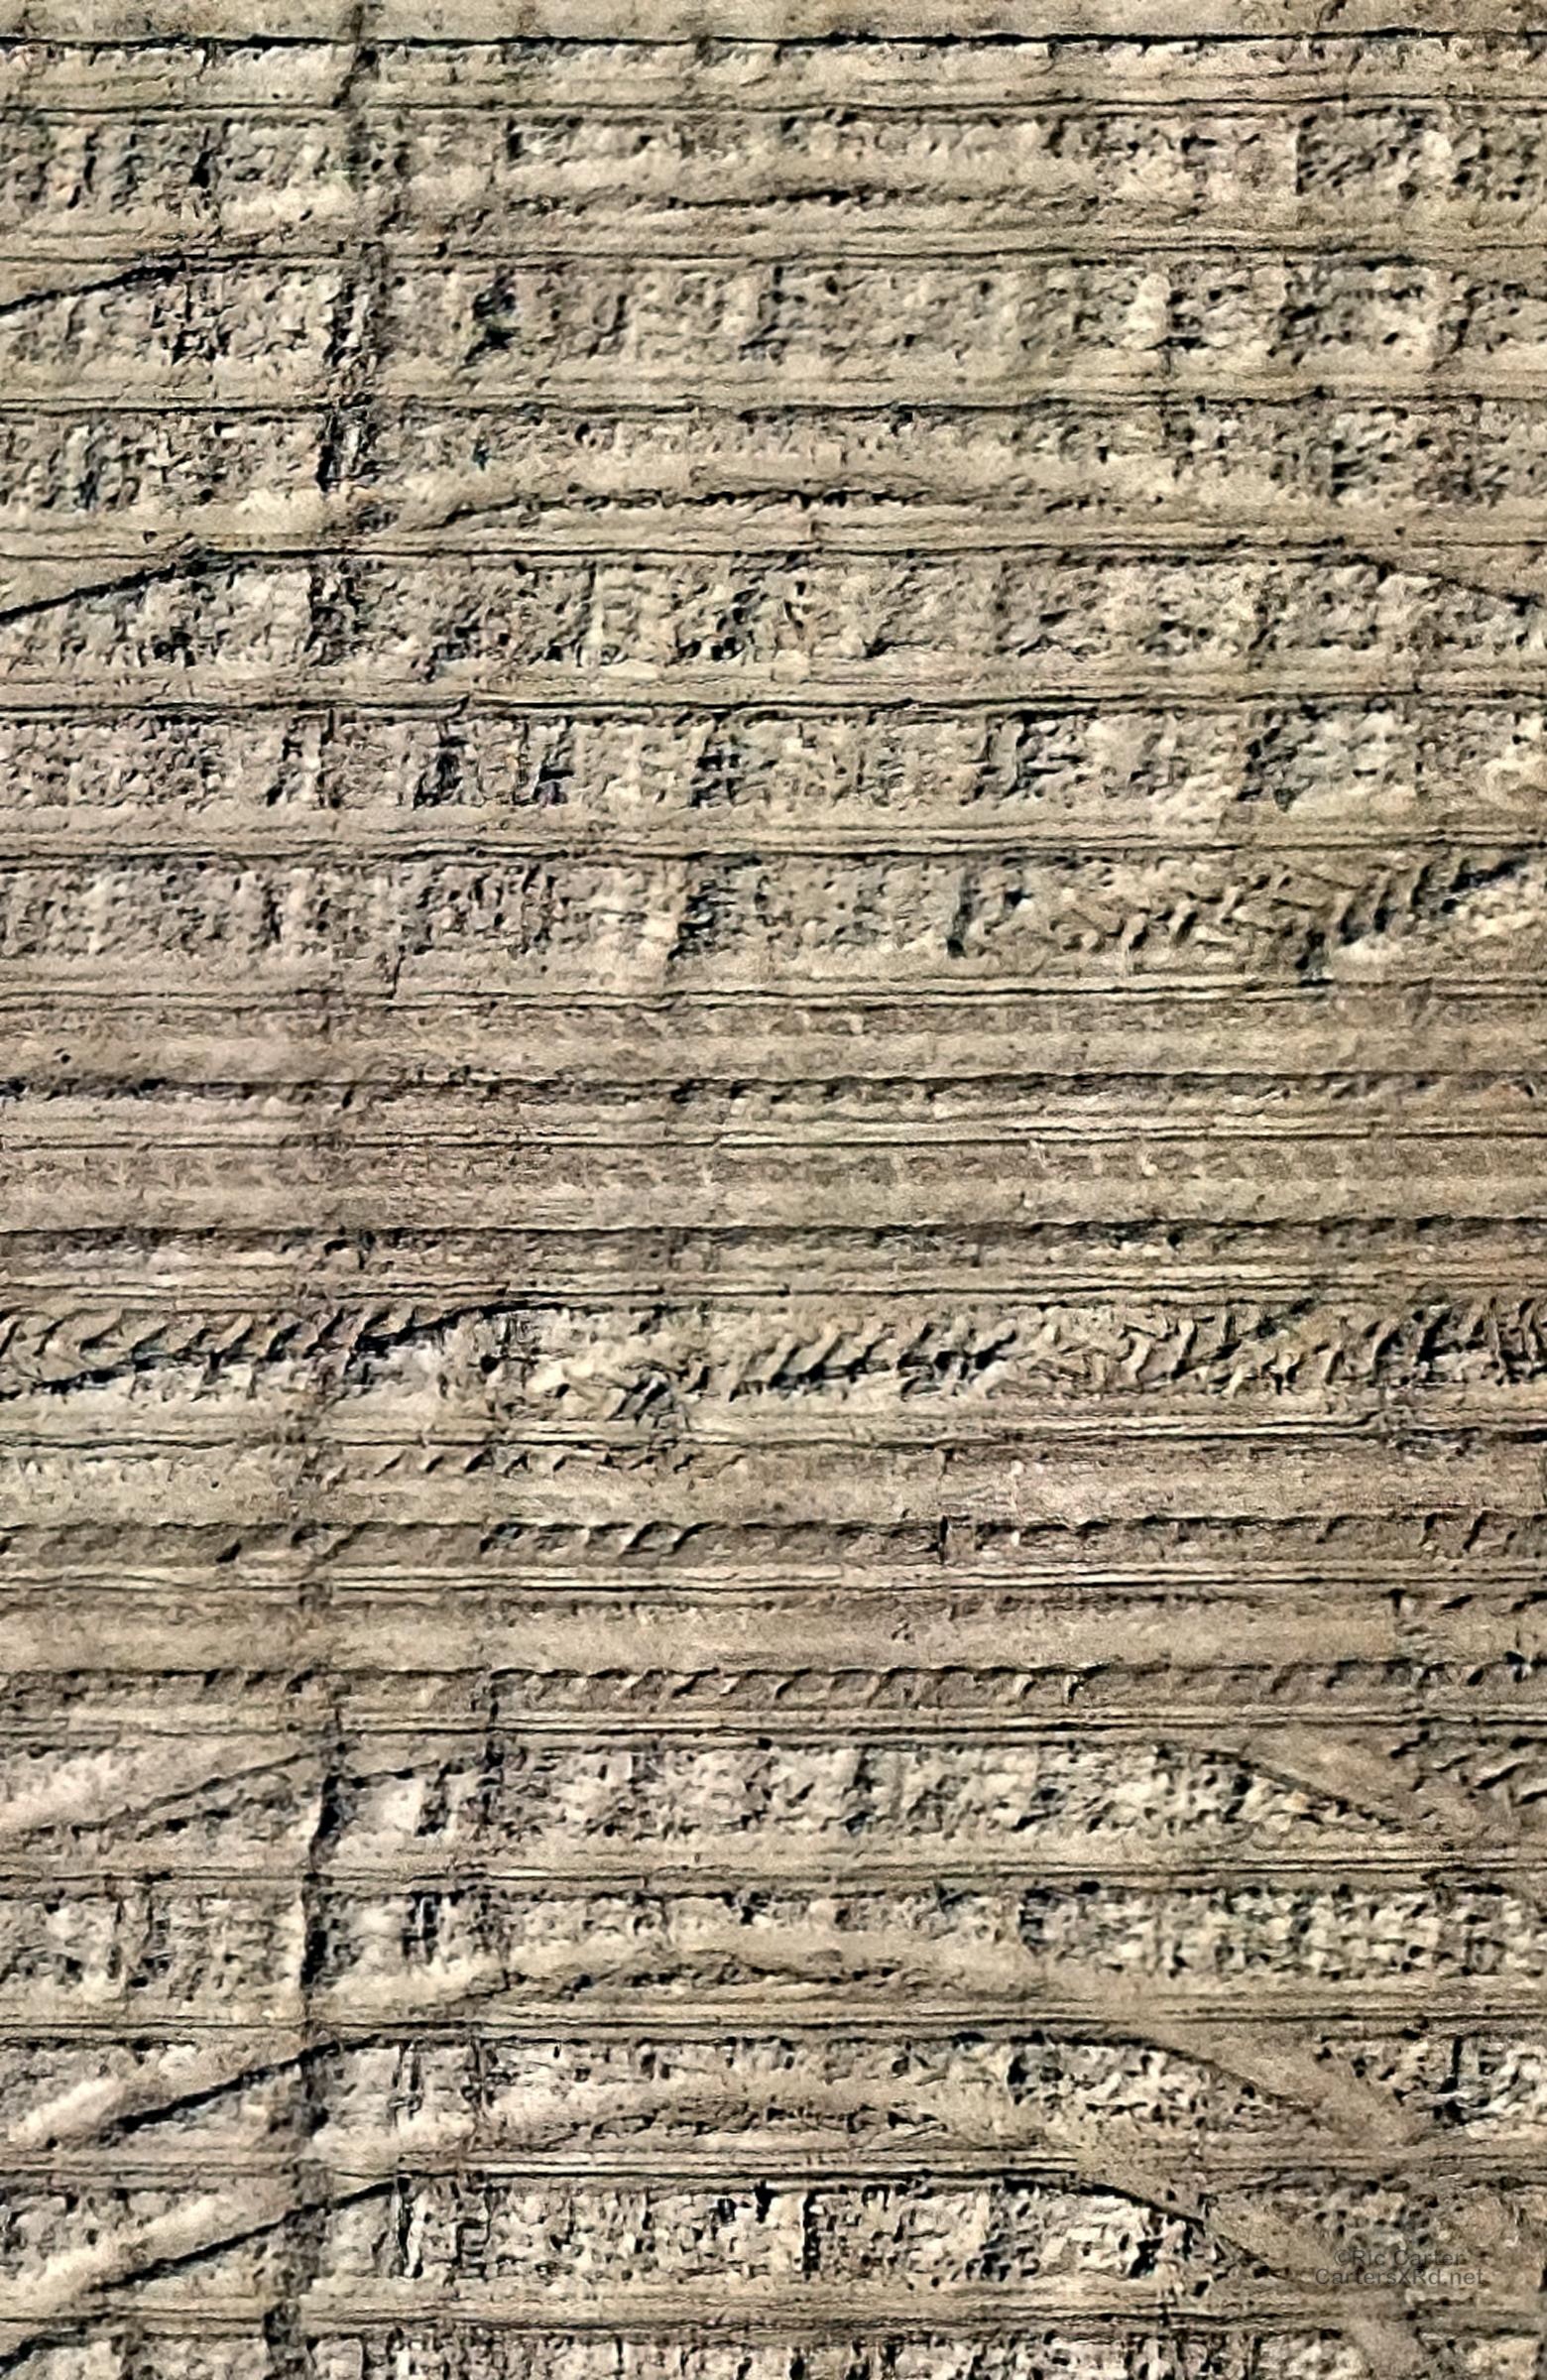 ©Ric Carter
CartersXRd.net